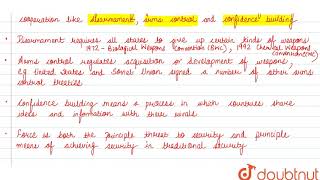 cooperation like disarmament, arms control and confidence building
• Disarmament requires all states to give up certain kinds of weapons.
1972 - Biological Weapons Convention (BWC), 1992 Chemical Weapons
Convention (CWC)
• Arms control regulates acquisition or development of weapons,
eg United States and Soviet Union signed a number of other arms
control treaties
• Confidence building means a process in which countries share
ideas and information with their rivals.
• Force is both the principle threat to security and principle
means of achieving security in traditional security
doubtnut